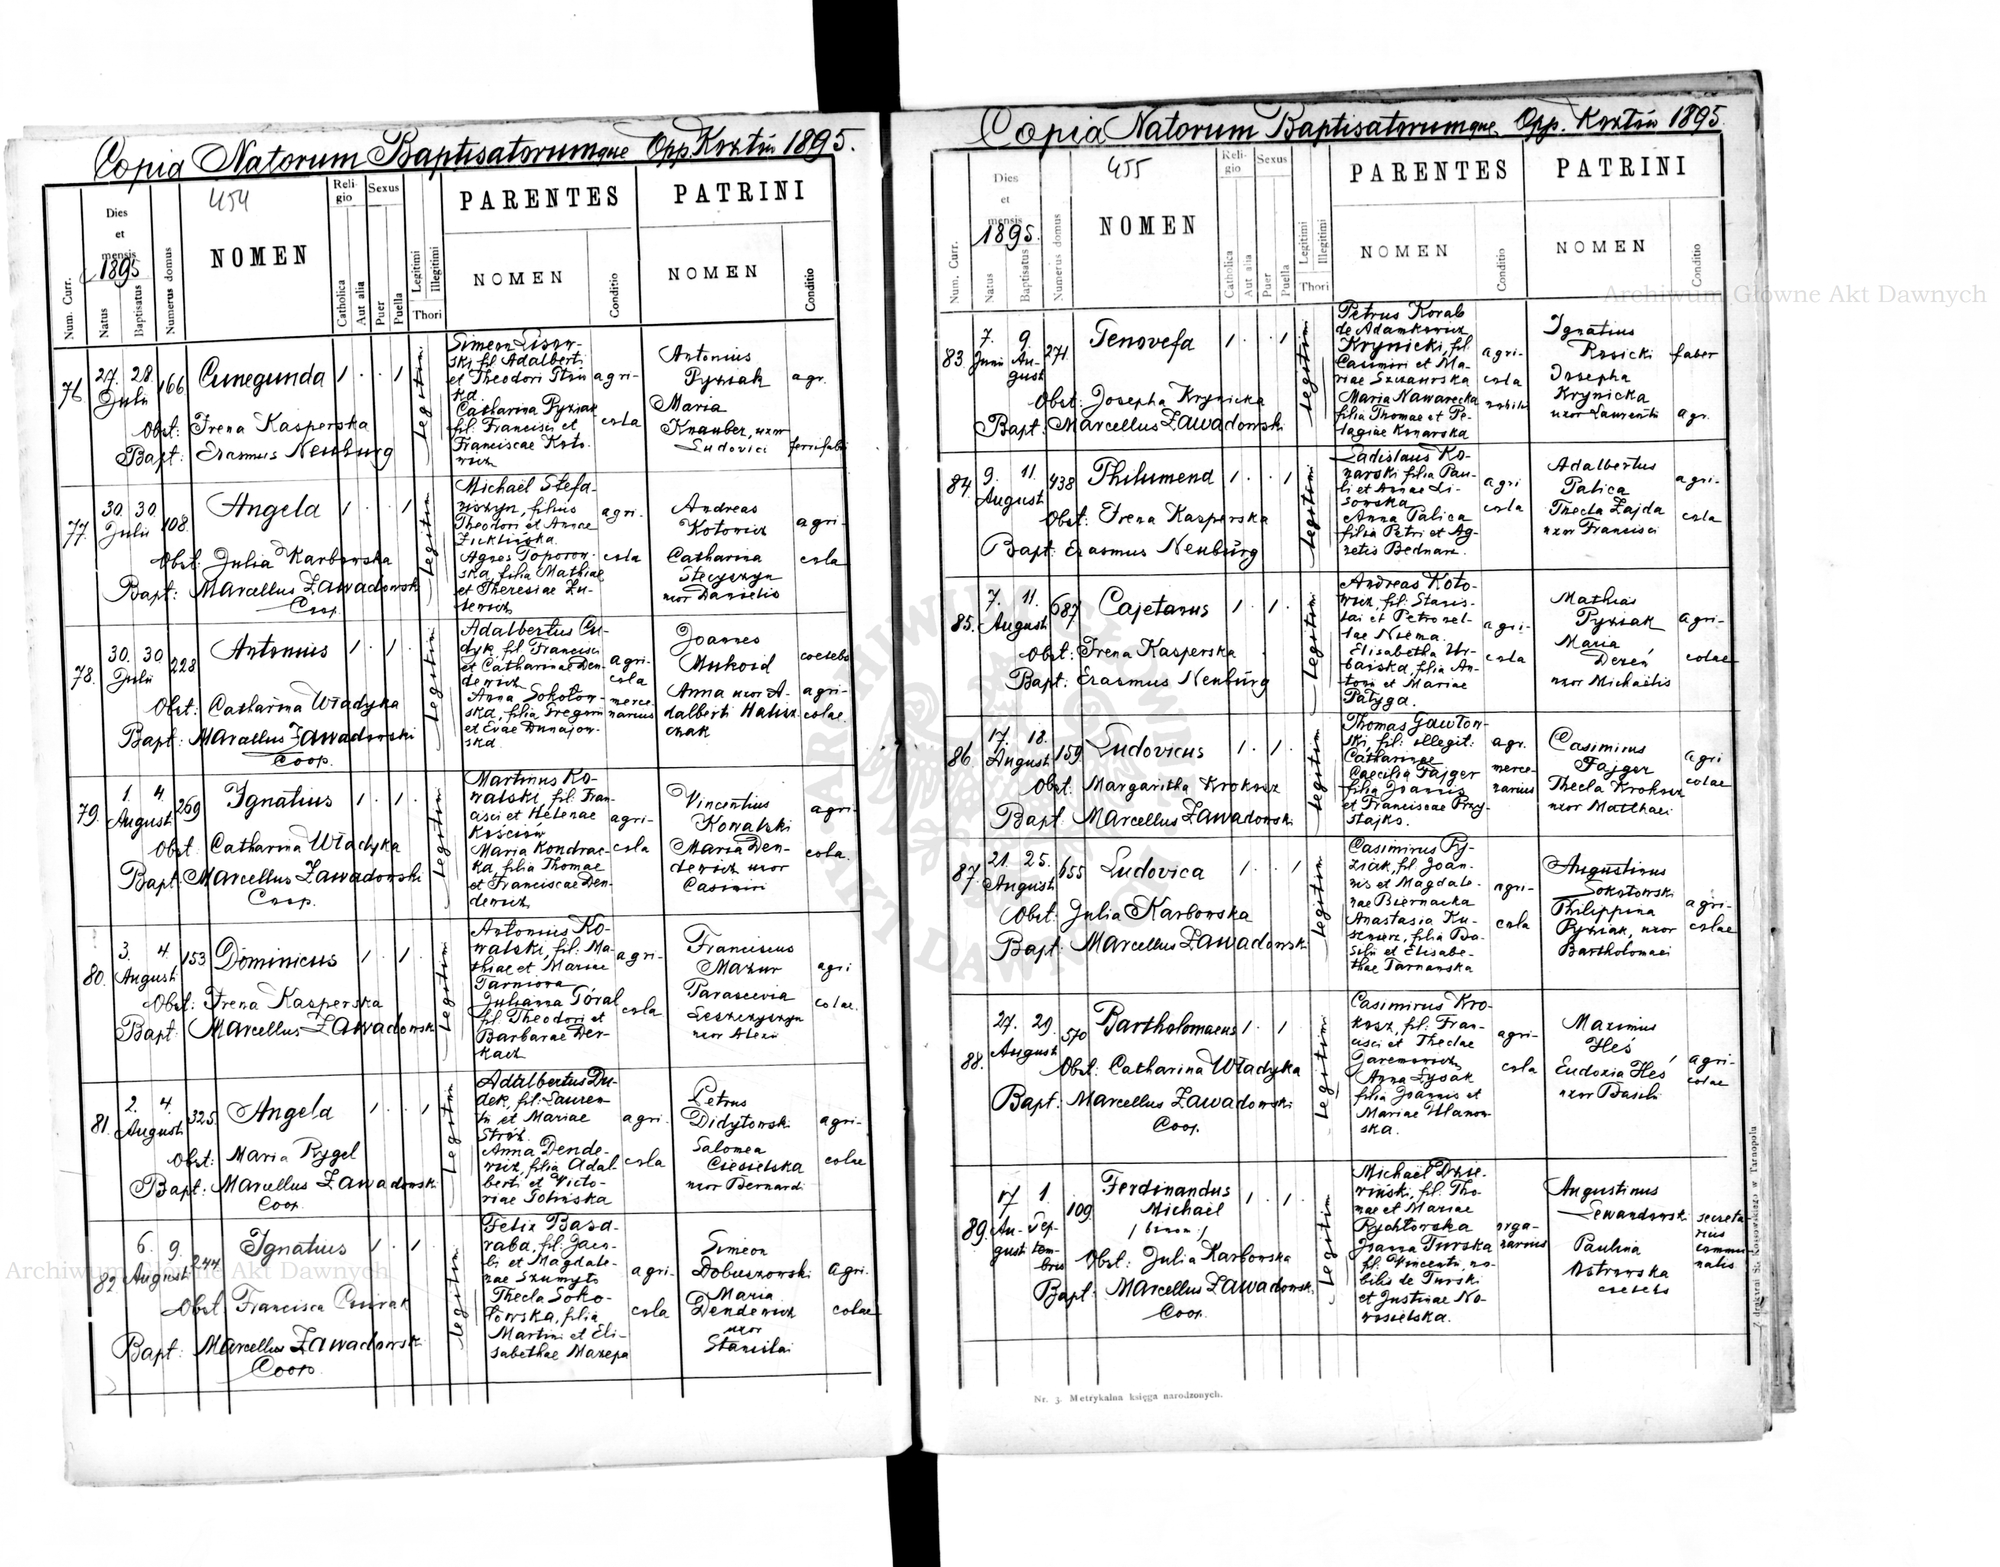 Copia Natorum Baptisatorumque Opp. Koztów 1895.
454
Dies
et
mensis
1895
Num. Curr.
Natus
Baptisatus
Numerus domus
NOMEN
Religio
Catholica
Aut alia
Sexus
Puer
Puella
Legitimi
Illegitimi
Thori
PARENTES
NOMEN
Conditio
PATRINI
NOMEN
Conditio
76. 27. 28. Julii 166 Cunegunda 1 . . 1 legitim
Obst: Irena Kasperska
Bapt: Erasmus Neuburg
Simeon Lisow-
ski, fil. Adalberti
et Theodori
Catharina Pyziak
fil. Francisci et
Franciscae Koto-
wicz
agri-
cola
Antonius
Pyziak agr.
Maria
Knauber, uxor
Ludovici ferrifabri
77. 30. 30. Julii 108. Angela 1 . . 1 legitim
Obst: Julia Karbowska
Bapt: Marcellus Zawadowski
Coop.
Michael Stefa-
niszyn, filius
Theodori et Annae
Zicklińska.
Agnes Toporow-
ska, filia Mathiae
et Theresiae Lu-
tewicz
agri-
cola
Andreas
Kotowicz
Catharina
Stecyszyn
uxor Danielis
agri-
cola
78. 30. 30 Julii 228 Antonius 1 . 1 . legitim
Obst: Catharina Władyka
Bapt: Marcellus Zawadowski
Coop.
Adalbertus Du-
dyk, fil. Francisci
et Catharinae Den-
dewicz
Anna Sokołow-
ska, filia Gregorii
et Evae Dunajow-
ska
agri-
cola
merce-
narius
Joannes
Mukoid coelebs
Anna uxor A-
dalberti Halisz-
czak
agri-
colae.
79. 1. 4. August 269 Ignatius 1 . 1 . legitim
Obst. Catharina Władyka
Bapt: Marcellus Zawadowski
Coop.
Martinus Ko-
walski, fil. Fran-
cisci et Helenae
Kościów
Maria Kondrac-
ka, filia Thomae
et Franciscae Den-
dewicz
agri-
cola
Vincentius
Kowalski
Maria Den-
dewicz uxor
Casimiri
agri-
cola.
80. 3. 4. August 153 Dominicus 1 . 1 . legitim
Obst: Irena Kasperska
Bapt: Marcellus Zawadowski
Antonius Ko-
walski, fil. Ma-
thiae et Mariae
Tarniowa
Julianna Góral
fil. Theodori et
Barbarae Der-
kacz
agri-
cola
Franciscus
Mazur
Parascevia
Leszczyszyn
uxor Alexii
agri
colae.
81. 2. 4. August 325 Angela 1 . . 1 legitim
Obst: Maria Rygel
Bapt: Marcellus Zawadowski
Coop.
Adalbertus Du-
dek, fil. Lauren-
tii et Mariae
Stróż.
Anna Dende-
wicz, filia Adal-
berti et Victo-
riae Solińska
agri.
cola
Petrus
Didytowski
Salomea
Ciesielska
uxor Bernardi
agri-
colae
82. 6. 9. August 244 Ignatius 1 . 1 . legitim
Obst: Francisca Ciurak
Bapt: Marcellus Zawadowski
Coop.
Felix Basa-
raba, fil: Jaco-
bi et Magdale-
nae Szumyło
Thecla Soko-
łowska, filia
Martini et Eli-
sabethae Mazepa
agri-
cola
Simeon
Dobuszowski
Maria
Dendewicz
uxor
Stanislai
agri-
colae
Copia Natorum Baptisatorumque Opp. Koztów 1895.
455
Dies
et
mensis
1895.
Num. Curr.
Natus
Baptisatus
Numerus domus
NOMEN
Religio
Catholica
Aut alia
Sexus
Puer
Puella
Legitimi
Illegitimi
Thori
PARENTES
NOMEN
Conditio
PATRINI
NOMEN
Conditio
83. 7. Junii 9. August 271. Genovefa 1. . 1 legitim
Obst: Josepha Krynicka
Bapt: Marcellus Zawadowski
Petrus Korab
de Adamkowicz
Krynicki, fil.
Casimiri et Ma-
riae Szczawska
Maria Nawarecka
filia Thomae et Pe-
lagiae Konarska
agri-
cola
nobilis
Ignatius
Rosicki faber
Josepha
Krynicka
uxor Laurentii agr.
84. 9. 11. August 438 Philumena 1 . . 1 legitim
Obst: Irena Kasperska
Bapt: Erasmus Neuburg
Ladislaus Ko-
narski filia Pau-
li et Annae Li-
sowska
Anna Palica
filia Petri et Ag-
netis Bednarz.
agri
cola
Adalbertus
Palica
Thecla Zajda
uxor Francisci
agri-
cola
85. 7. 11. August 687 Cajetanus 1 . 1 . legitim
Obst: Irena Kasperska
Bapt: Erasmus Neuburg
Andreas Koto-
wicz, fil. Stanis-
lai et Petronel-
lae Niema.
Elisabetha Ur-
bańska, filia An-
tonii et Mariae
Pałyga.
agri-
cola
Mathias
Pyziak
Maria
Dereń
uxor Michaelis
agri-
colae
86. 17. 18. August 159 Ludovicus 1 . 1 . legitim
Obst: Margaritha Krokosz
Bapt: Marcellus Zawadowski
Thomas Gawłow-
ski, fil: illegit:
Catharinae
Caecilia Fajger
filia Joannis
et Franciscae Przy-
stajko.
agr.
merce-
narius
Casimirus
Fajger
Thecla Krokosz
uxor Matthaei
agri
colae
87. 21. 25. August 655 Ludovica 1 . . 1 legitim
Obst. Julia Karbowska
Bapt: Marcellus Zawadowski
Casimirus Py-
ziak, fil. Joan-
nis et Magdale-
nae Biernacka
Anastasia Ku-
filia Ba-
silii et Elisabe-
thae Tarnawska
agri-
cola
Augustinus
Sokołowski
Philippina
Pyziak, uxor
Bartholomaei
agri-
colae
88. 27. 29. August 570 Bartholomaeus 1 . 1 legitim
Obst: Catharina Władyka
Bapt: Marcellus Zawadowski
Coop.
Casimirus Kro-
kosz, fil: Fran-
cisci et Theclae
Jaremowicz
Anna Lysak
filia Joannis et
Mariae Ulanow-
ska.
agri-
cola
Maximus
Heś
Eudoxia Heś
uxor Basilii
agri-
colae
89. 17 August 1. September 109 Ferdinandus
Michael
/ binom: / 1 . 1 . legitim
Obst: Julia Karbowska
Bapt: Marcellus Zawadowski
Coop.
Michael Dzie-
wiński, fil. Tho-
mae et Mariae
Rychtowska
Joanna Turska
fil. Vincentii, no-
bilis de Turski
et Justinae No-
wosielska.
orga-
narius
Augustinus
Lewandowski
Paulina
Ostrowska
coelebs
secreta-
rius
commu-
nalis
Nr. 3. Metrykalna księga narodzonych.
Z drukarni St. Kossowskiego w Tarnopolu
Archiwum Główne Akt Dawnych
Archiwum Główne Akt Dawnych
ARCHIWUM GŁÓWNE AKT DAWNYCH